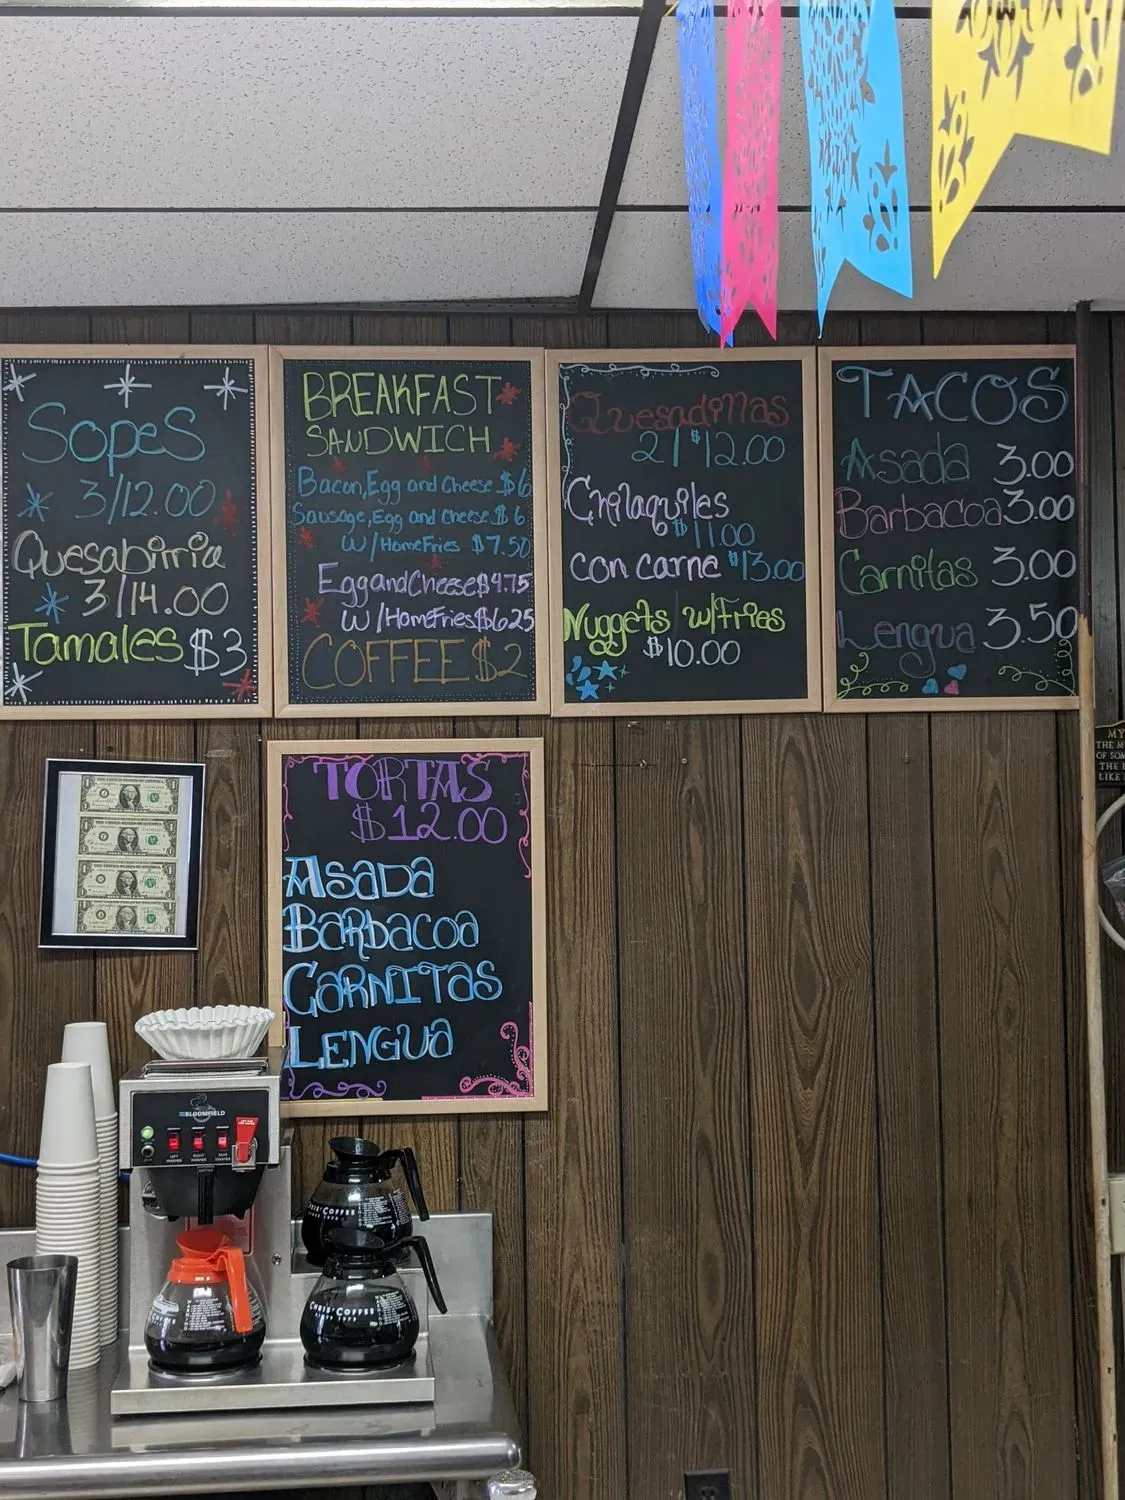 Sopes
3/12.00
Quesabirria
3/14.00
Tamales $3
BREAKFAST
SANDWICH
Bacon, Egg and Cheese $6
Sausage, Egg and Cheese $6
w/HomeFries $7.50
Egg and Cheese $4.75
w/HomeFries $6.25
COFFEE $2
Quesadillas
2/$12.00
Chilaquiles
$11.00
con carne $13.00
Nuggets w/Fries
$10.00
TACOS
Asada 3.00
Barbacoa 3.00
Carnitas 3.00
Lengua 3.50
TORTAS
$12.00
ASADA
BARBACOA
CARNITAS
LENGUA
MY
THE
OF
THE
LIKE
BLOOMFIELD
LEFT WARMER
RIGHT WARMER
REAR WARMER
COFFEE
CHRIS' COFFEE